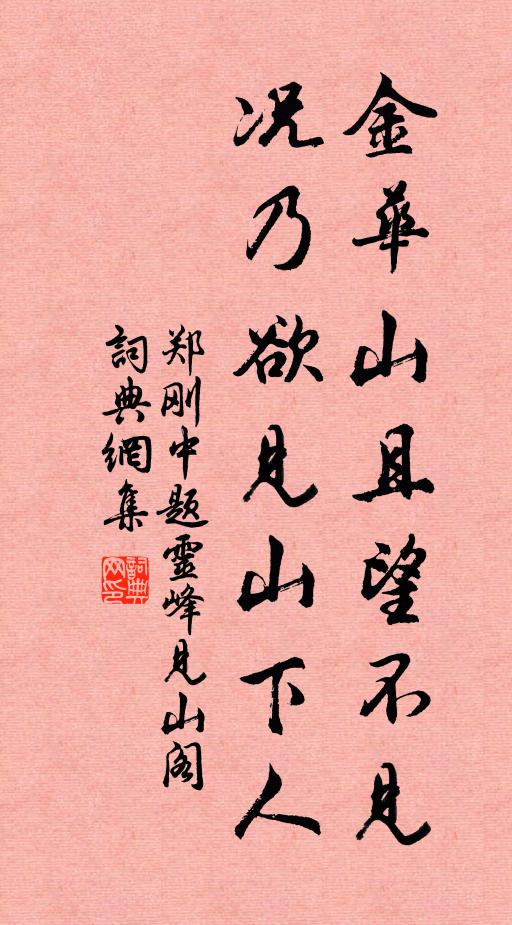 金華山且望不見
况乃欲見山下人
郑刚中题靈峰见山阁
詞典網集
詞典网印